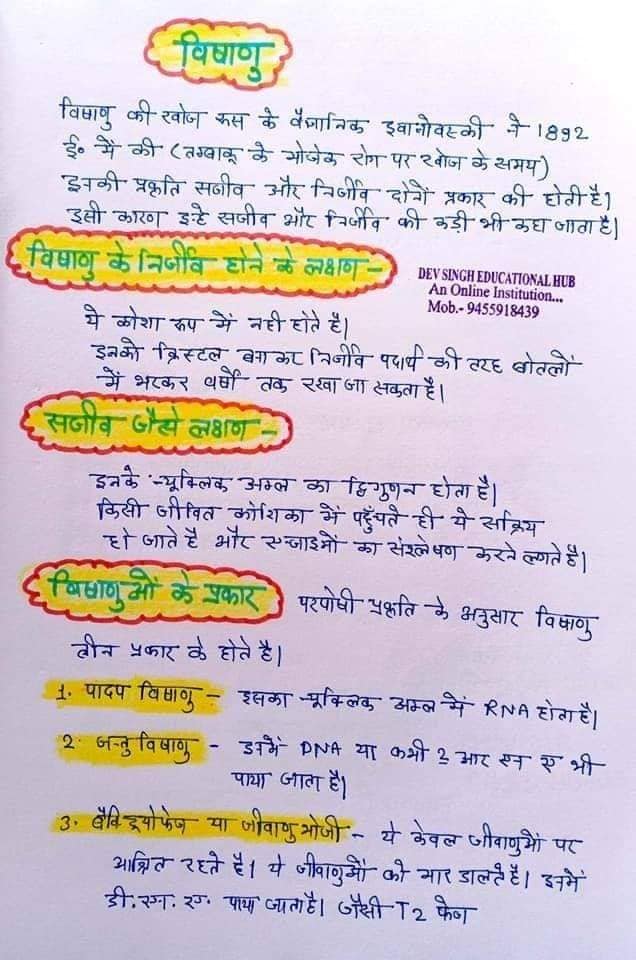 विषाणु
विषाणु की खोज रूस के वैज्ञानिक इवानोवस्की ने 1892
ई॰ में की (तम्बाकू के मोजेक रोग पर खोज के समय)
इनकी प्रकृति सजीव और निर्जीव दोनों प्रकार की होती है।
इसी कारण इन्हे सजीव और निर्जीव की कड़ी भी कहा जाता है।
विषाणु के निर्जीव होने के लक्षण -
DEV SINGH EDUCATIONAL HUB
An Online Institution...
Mob.- 9455918439
ये कोशा रूप में नही होते है।
इनको क्रिस्टल बनाकर निर्जीव पदार्थ की तरह बोतलों
में भरकर वर्षों तक रखा जा सकता है।
सजीव जैसे लक्षण -
इनके न्यूक्लिक अम्ल का द्विगुणन होता है।
किसी जीवित कोशिका में पहुँचते ही ये सक्रिय
हो जाते है और एन्जाइमों का संश्लेषण करने लगते है।
विषाणुओं के प्रकार
परपोषी प्रकृति के अनुसार विषाणु
तीन प्रकार के होते है।
1. पादप विषाणु - इसका न्यूक्लिक अम्ल में RNA होता है।
2. जन्तु विषाणु - इनमें DNA या कभी 2 आर एन ए भी
पाया जाता है।
3. बैक्ट्रियोफेज या जीवाणुभोजी - ये केवल जीवाणुओं पर
आश्रित रहते है। ये जीवाणुओं को मार डालते है। इनमें
डी. एन. ए. पाया जाता है। जैसी T2 फेज